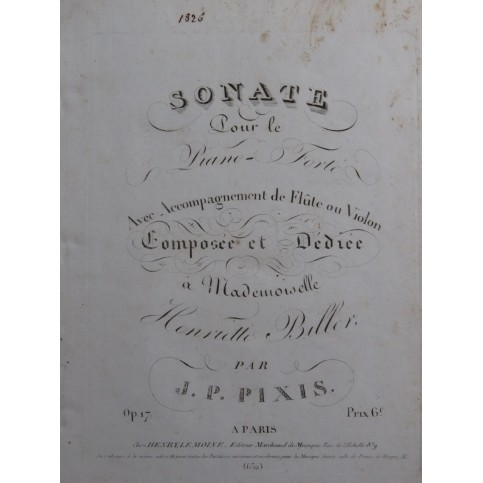 1826
SONATE
Pour le
Piano-Forté
Avec Accompagnement de Flûte ou Violon
Composée et Dédiée
à Mademoiselle
Henriette Biller.
PAR
J. P. PIXIS.
Op. 17. Prix 6f
A PARIS
Chez HENRY LEMOINE, Editeur Marchand de Musique, Rue de l'Echelle No. 9